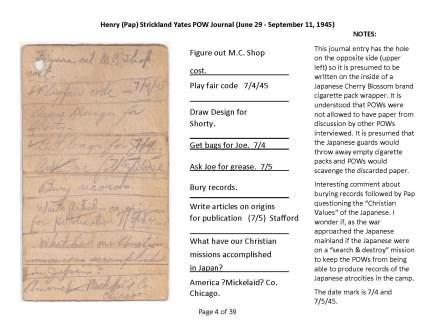 Henry (Pap) Strickland Yates POW Journal (June 29 - September 11, 1945)
Figure out M.C. Shop
cost.
Play fair code 7/4/45
Draw Design for
Shorty.
Get bags for Joe. 7/4
Ask Joe for grease. 7/5
Bury records.
Write articles on origins
for publication (7/5) Stafford
What have our Christian
missions accomplished
in Japan?
America ?Mickelaid? Co.
Chicago.
NOTES:
This journal entry has the hole
on the opposite side (upper
left) so it is presumed to be
written on the inside of a
Japanese Cherry Blossom brand
cigarette pack wrapper. It is
understood that POWs were
not allowed to have paper from
discussion by other POWs
interviewed. It is presumed that
the Japanese guards would
throw away empty cigarette
packs and POWs would
scavenge the discarded paper.
Interesting comment about
burying records followed by Pap
questioning the "Christian
Values" of the Japanese. I
wonder if, as the war
approached the Japanese
mainland if the Japanese were
on a "search & destroy" mission
to keep the POWs from being
able to produce records of the
Japanese atrocities in the camp.
The date mark is 7/4 and
7/5/45.
Page 4 of 39
Figure out M.C. Shop
cost.
Play fair code 7/4/45
Bury records.
What have our Christian
missions accomplished
in Japan?